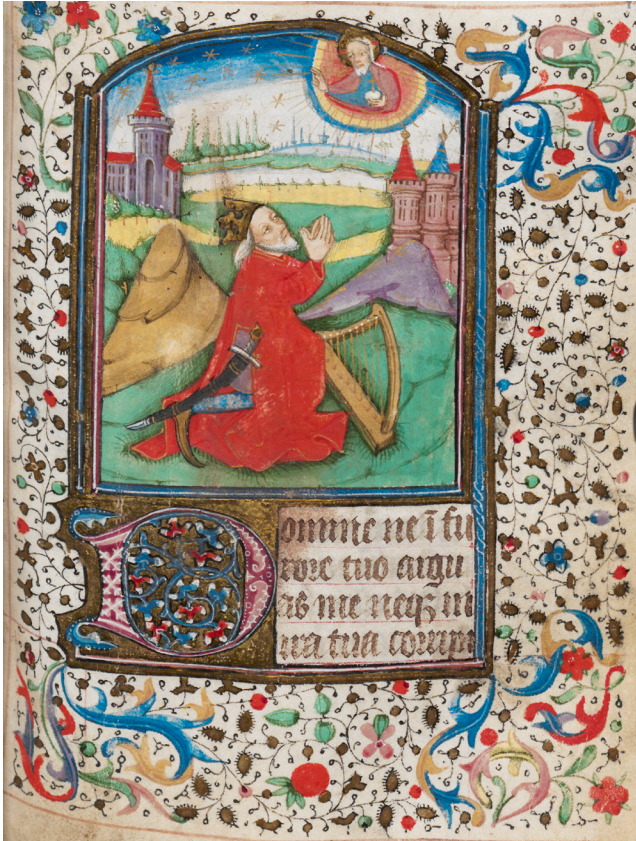 Domine ne ī fu
rore tuo argu
as me neqꝫ in
ira tua corripi